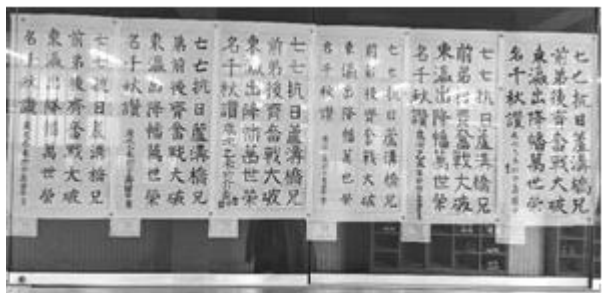 七七抗日蘆溝橋兄
前弟後齊奮戰大破
東瀛出降幡萬世榮
名千秋讚
七七抗日蘆溝橋兄
前弟後齊奮戰大破
東瀛出降幡萬世榮
名千秋讚
七七抗日蘆溝橋兄
前弟後齊奮戰大破
東瀛出降幡萬世榮
名千秋讚
七七抗日蘆溝橋兄
前弟後齊奮戰大破
東瀛出降幡萬世榮
名千秋讚
七七抗日蘆溝橋兄
弟前後齊奮戰大破
東瀛出降幡萬世榮
名千秋讚
七七抗日蘆溝橋兄
前弟後齊奮戰大破
東瀛出降幡萬世榮
名千秋讚